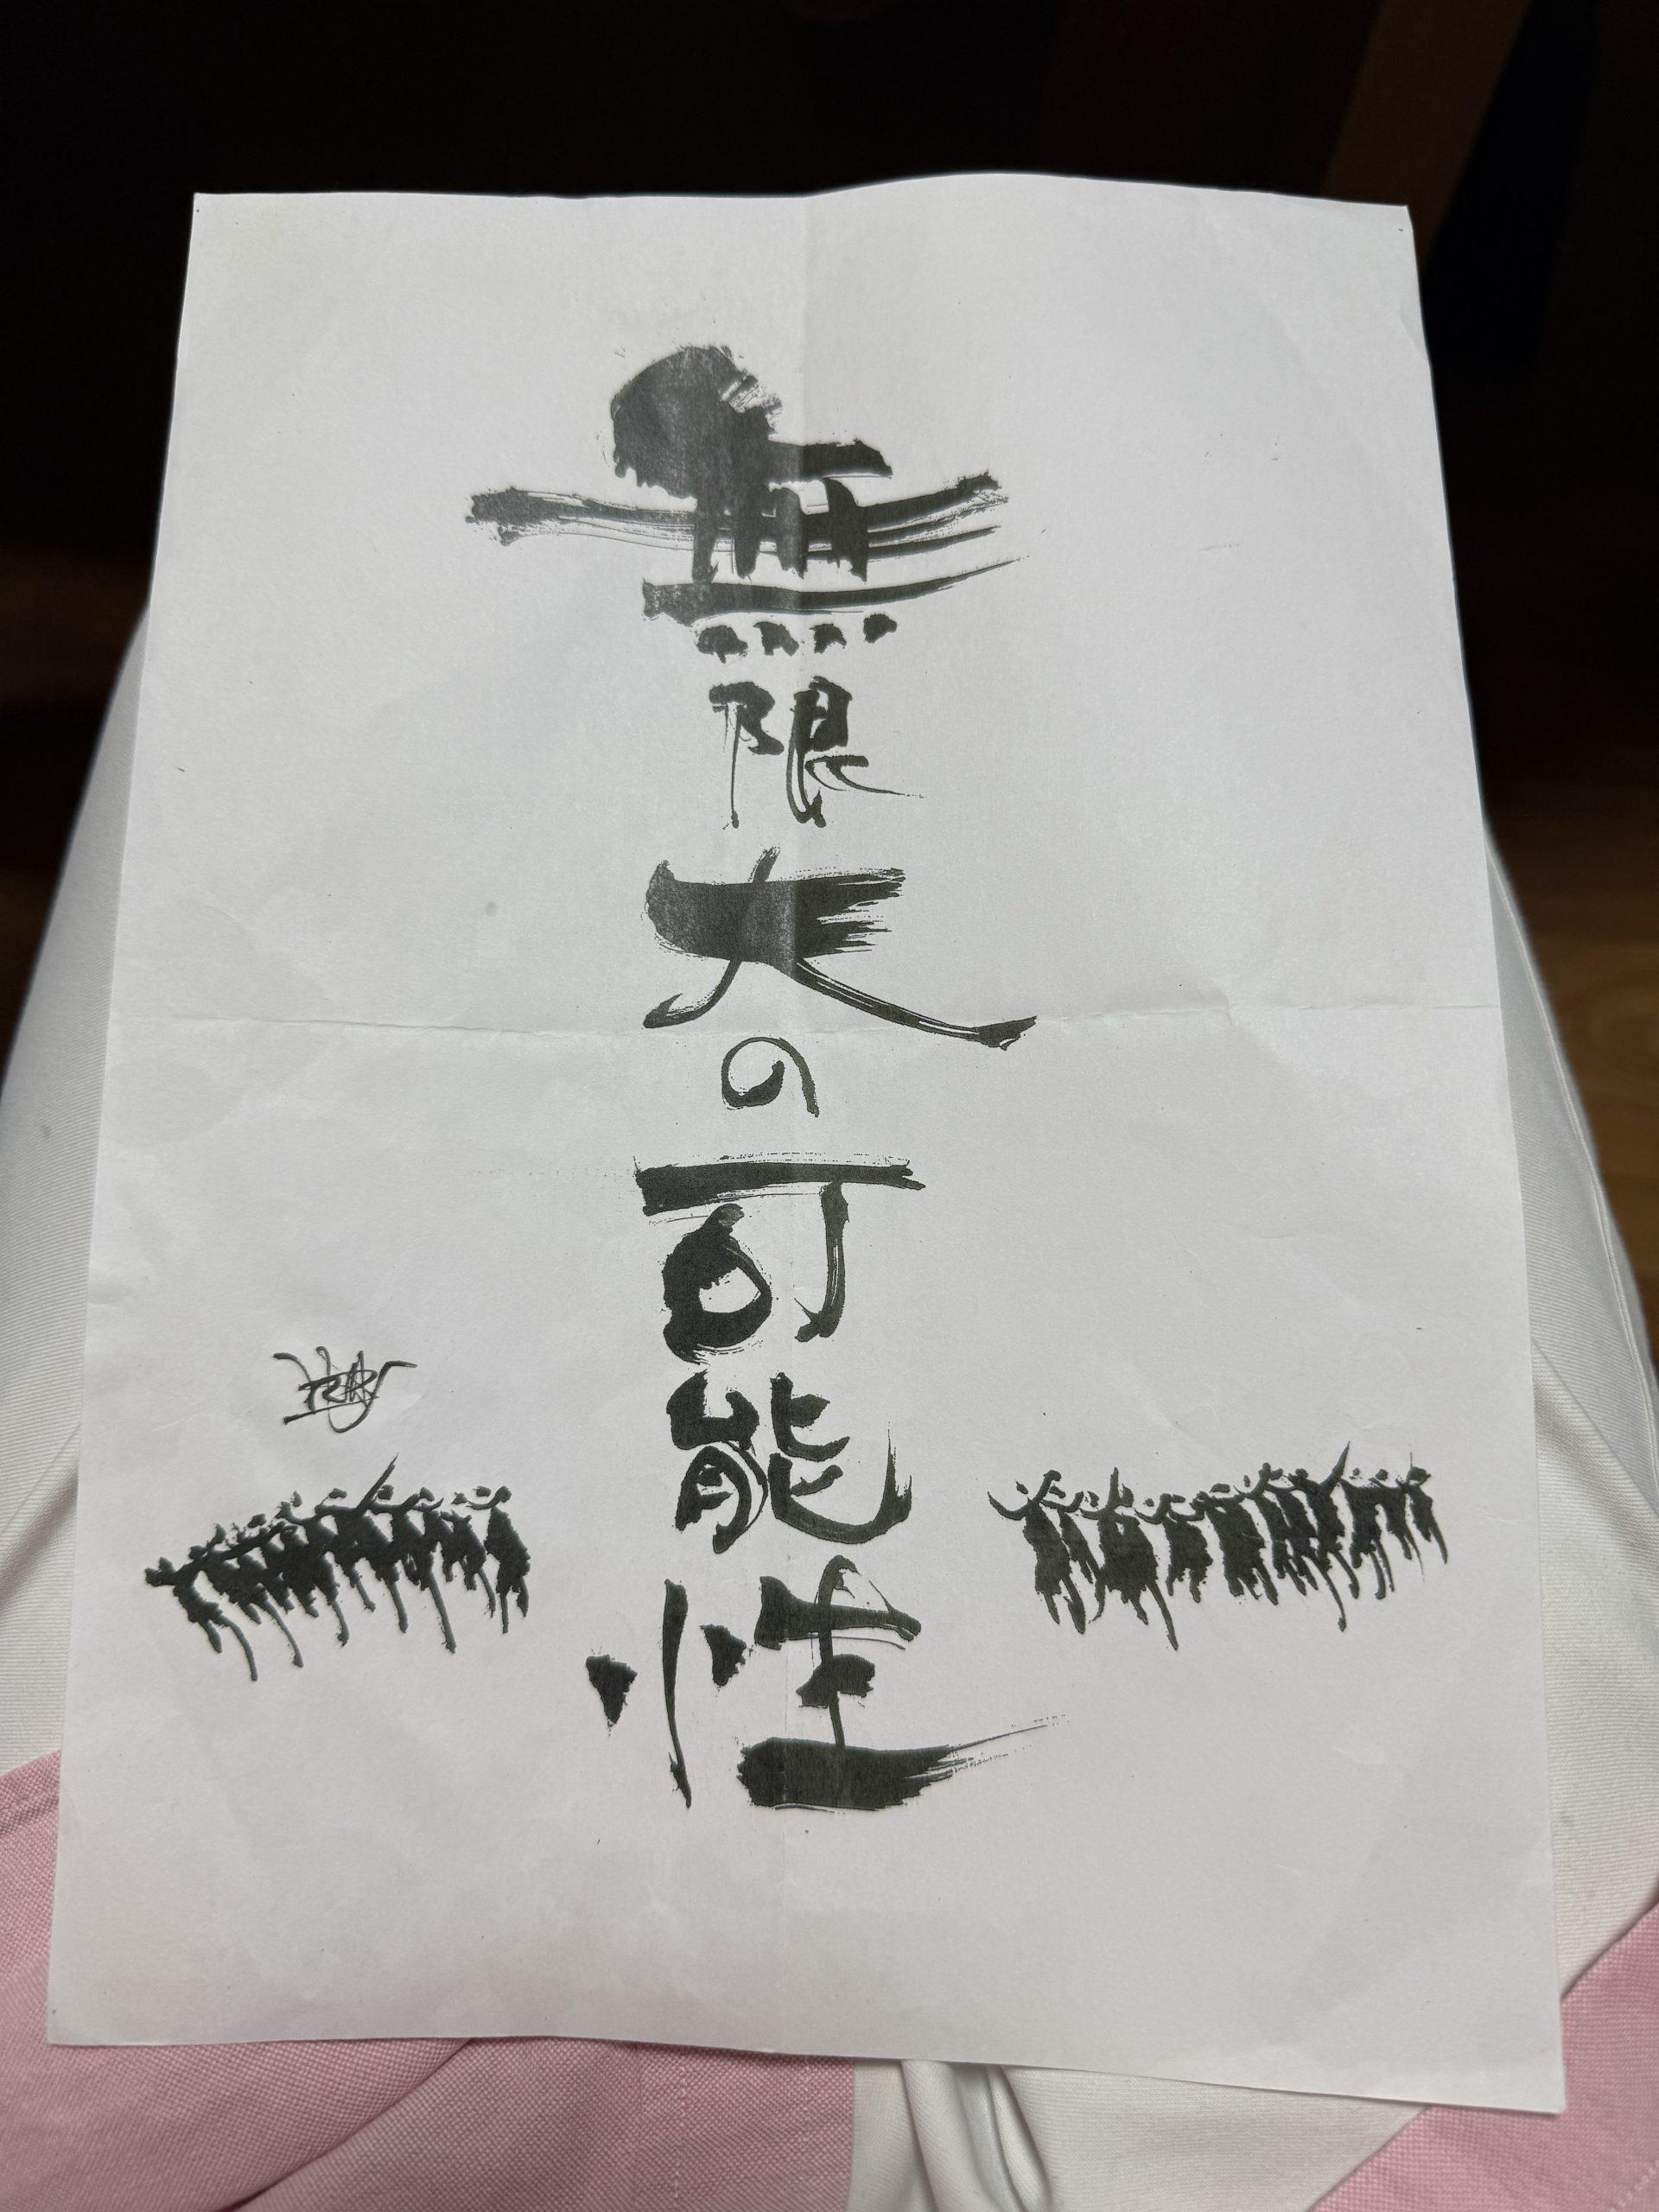 無限大の可能性